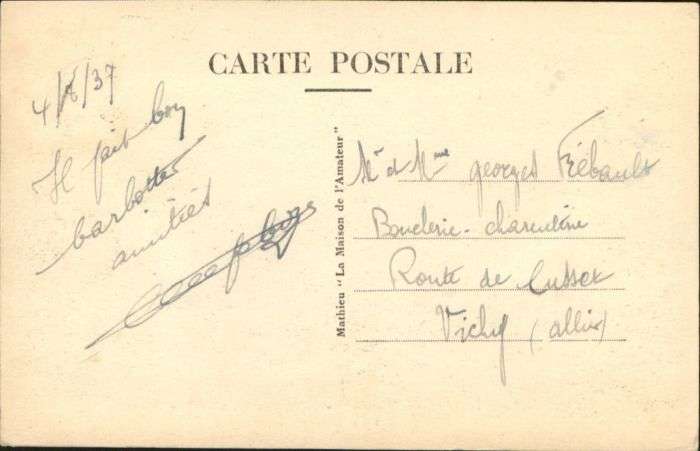 CARTE POSTALE
4/8/37
Il fait bon
barbotter
amitiés
Mathieu "La Maison de l'Amateur"
Mr et Mme georges Fiébault
Boucherie - charcuterie
Route de Cusset
Vichy (allier)